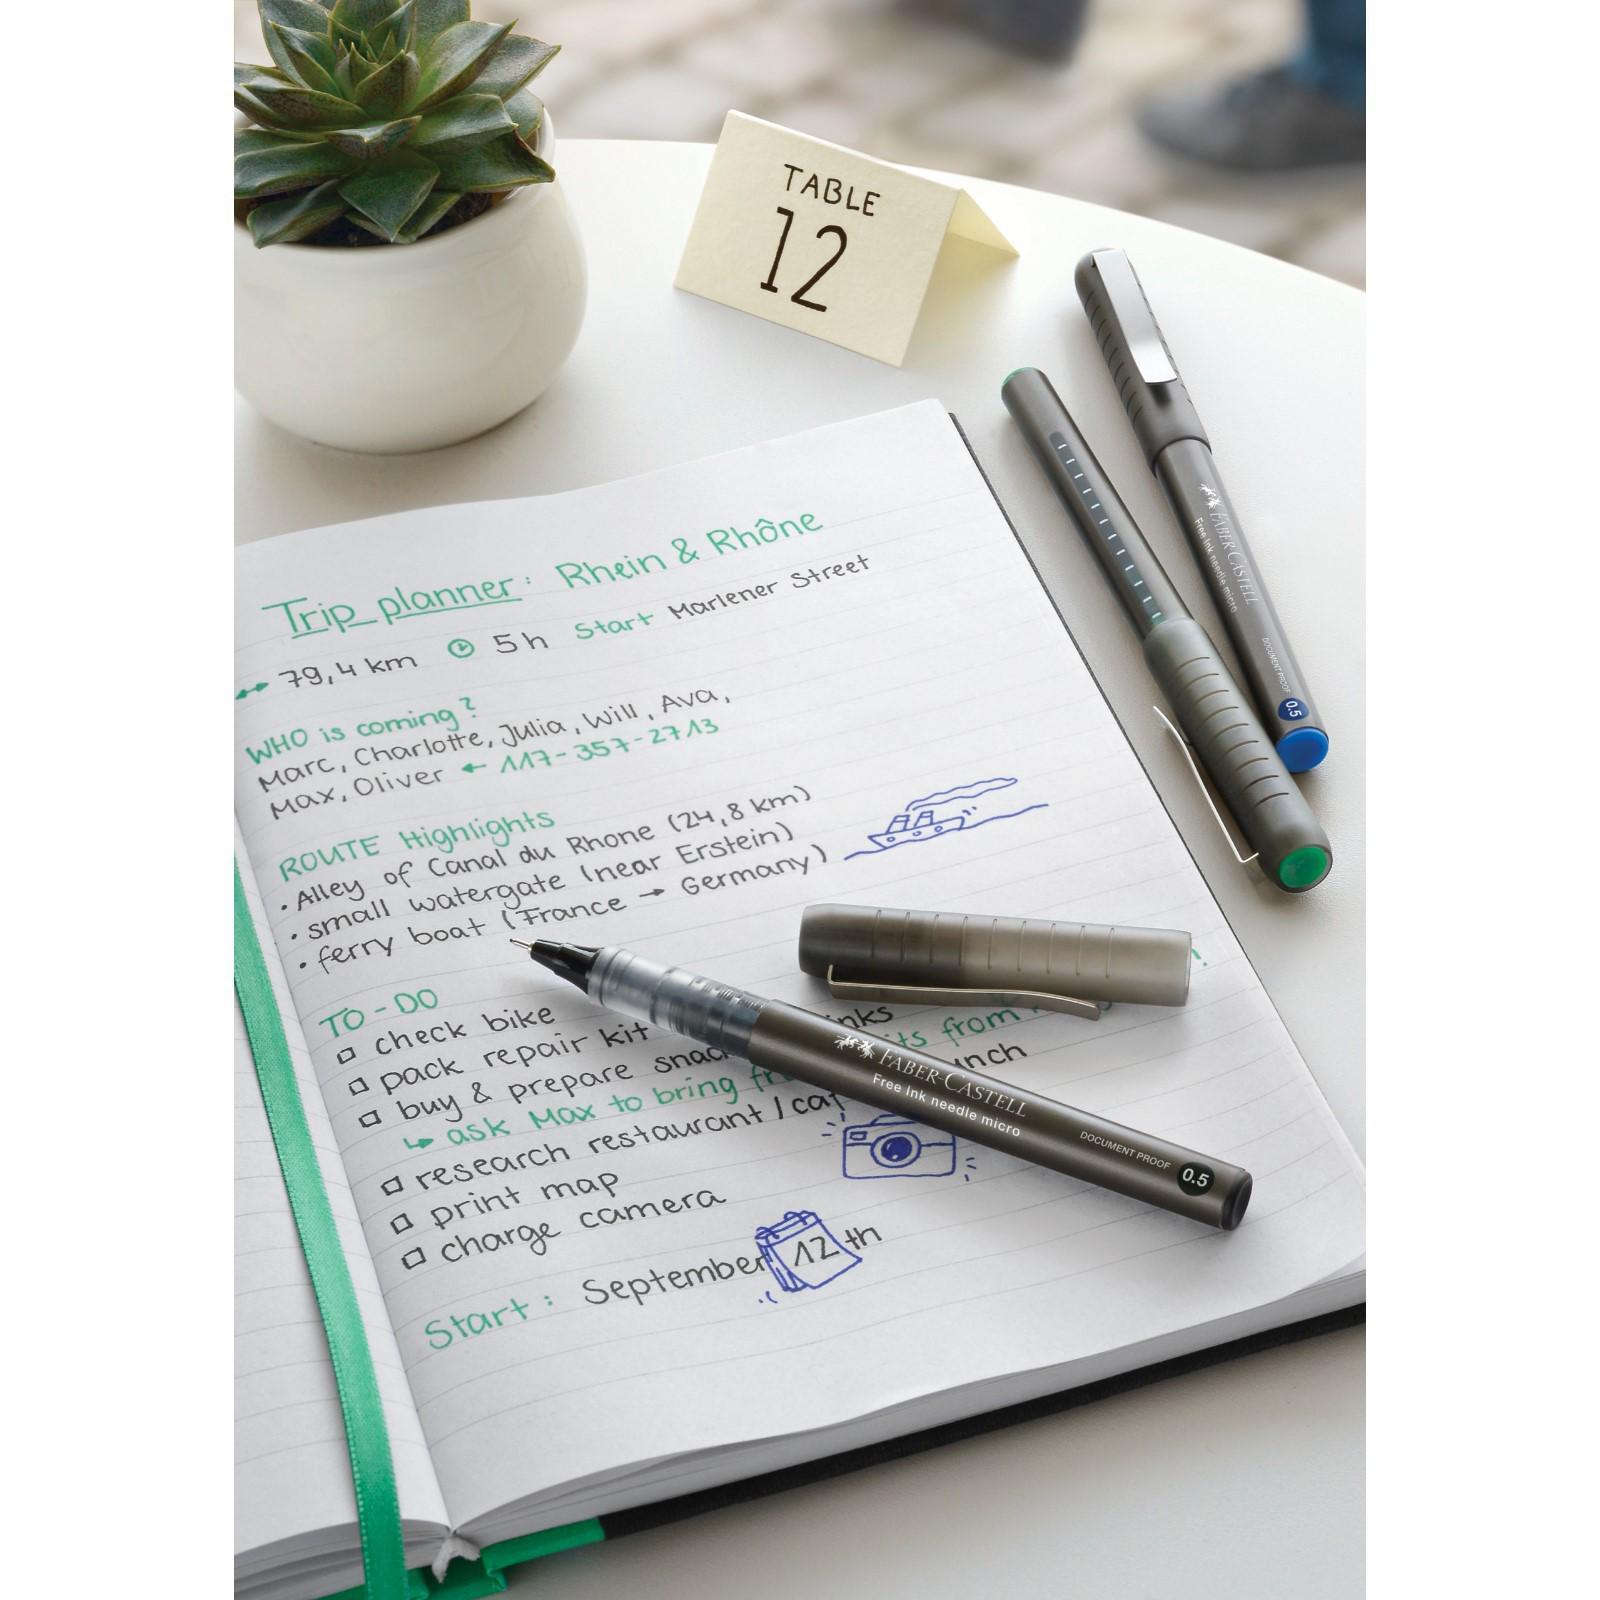 TABLE
12
Trip planner: Rhein & Rhône
79,4 km 5 h Start Marlener Street
WHO is coming?
Marc, Charlotte, Julia, Will, Ava,
Max, Oliver ← 117-357-2713
ROUTE Highlights
• Alley of Canal du Rhone (24,8 km)
• small watergate (near Erstein)
• ferry boat (France → Germany)
TO-DO
check bike
pack repair kit
buy & prepare
ask Max to bring from
research restaurant /
print map
charge camera
Start: September 12 th
FABER-CASTELL
Free Ink needle micro
DOCUMENT PROOF
0.5
FABER-CASTELL
Free Ink needle micro
DOCUMENT PROOF
0.5